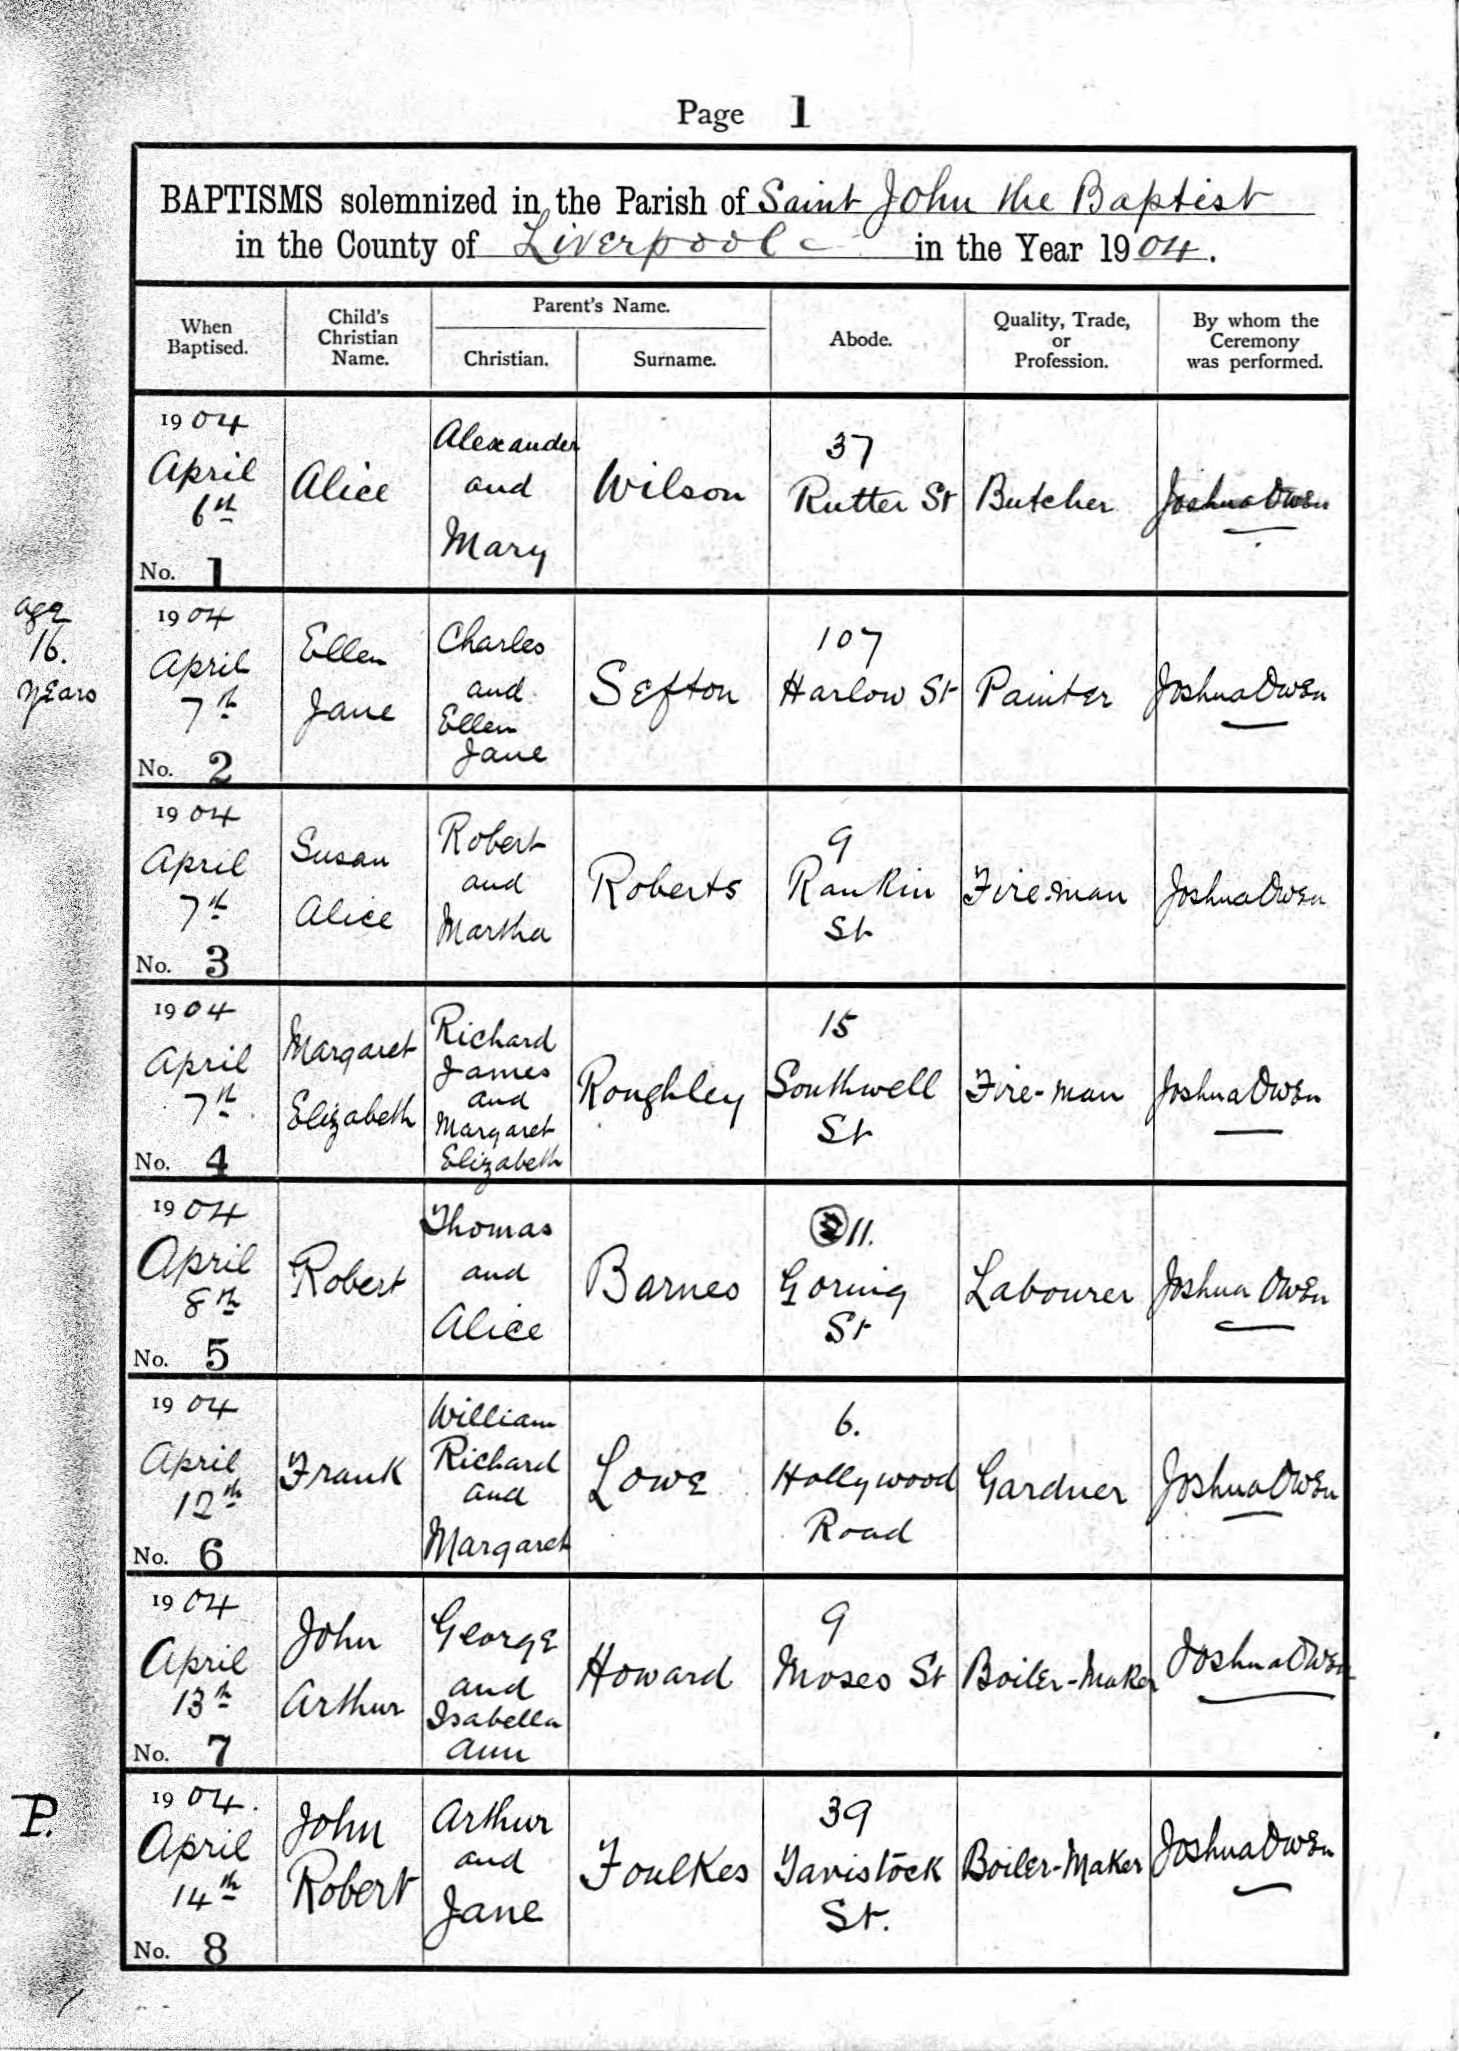 Page 1
BAPTISMS solemnized in the Parish of Saint John the Baptist
in the County of Liverpool in the Year 1904.
When Baptised.
Child's Christian Name.
Parent's Name.
Christian.
Surname.
Abode.
Quality, Trade, or Profession.
By whom the Ceremony was performed.
1904
April
6th
No. 1
Alice
Alexander
and
Mary
Wilson
37
Rutter St
Butcher
Joshua Owen
age
16.
years
1904
April
7th
No. 2
Ellen
Jane
Charles
and
Ellen
Jane
Sefton
107
Harlow St
Painter
Joshua Owen
1904
April
7th
No. 3
Susan
Alice
Robert
and
Martha
Roberts
9
Rankin
St
Fire-man
Joshua Owen
1904
April
7th
No. 4
Margaret
Elizabeth
Richard
James
and
Margaret
Elizabeth
Roughley
15
Southwell
St
Fire-man
Joshua Owen
1904
April
8th
No. 5
Robert
Thomas
and
Alice
Barnes
11.
Goring
St
Labourer
Joshua Owen
1904
April
12th
No. 6
Frank
William
Richard
and
Margaret
Lowe
6.
Hollywood
Road
Gardner
Joshua Owen
1904
April
13th
No. 7
John
Arthur
George
and
Isabella
Ann
Howard
9
Moses St
Boiler-Maker
Joshua Owen
P.
1904.
April
14th
No. 8
John
Robert
Arthur
and
Jane
Foulkes
39
Tavistock
St.
Boiler-Maker
Joshua Owen